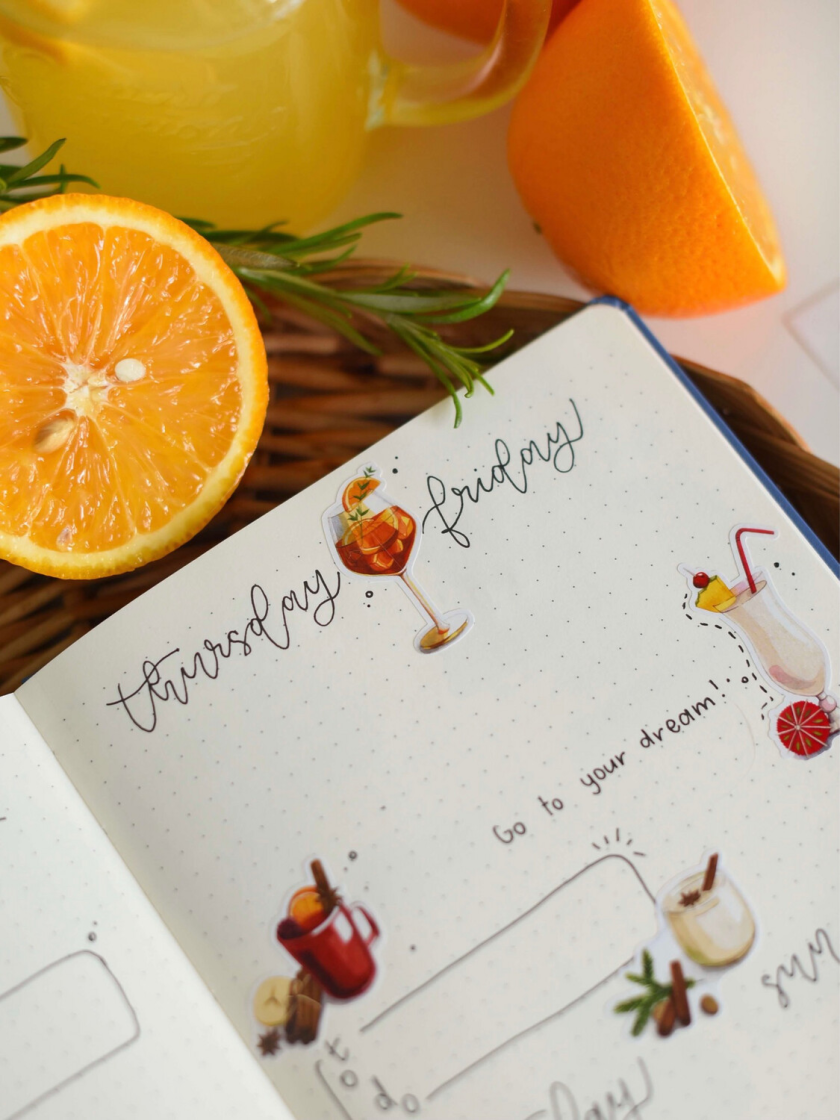 thursday
friday
Go to your dream!
to do